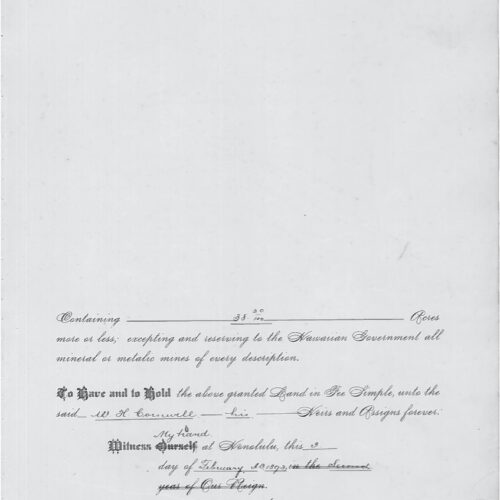 Containing 38 30/100 Acres
more or less; excepting and reserving to the Hawaiian Government all
mineral or metalic mines of every description.
To Have and to Hold the above granted Land in Fee Simple, unto the
said W H Cornwell his Heirs and Assigns forever.
My hand
Witness Ourself at Honolulu, this 3
day of February AD 1893, in the Second
year of Our Reign.